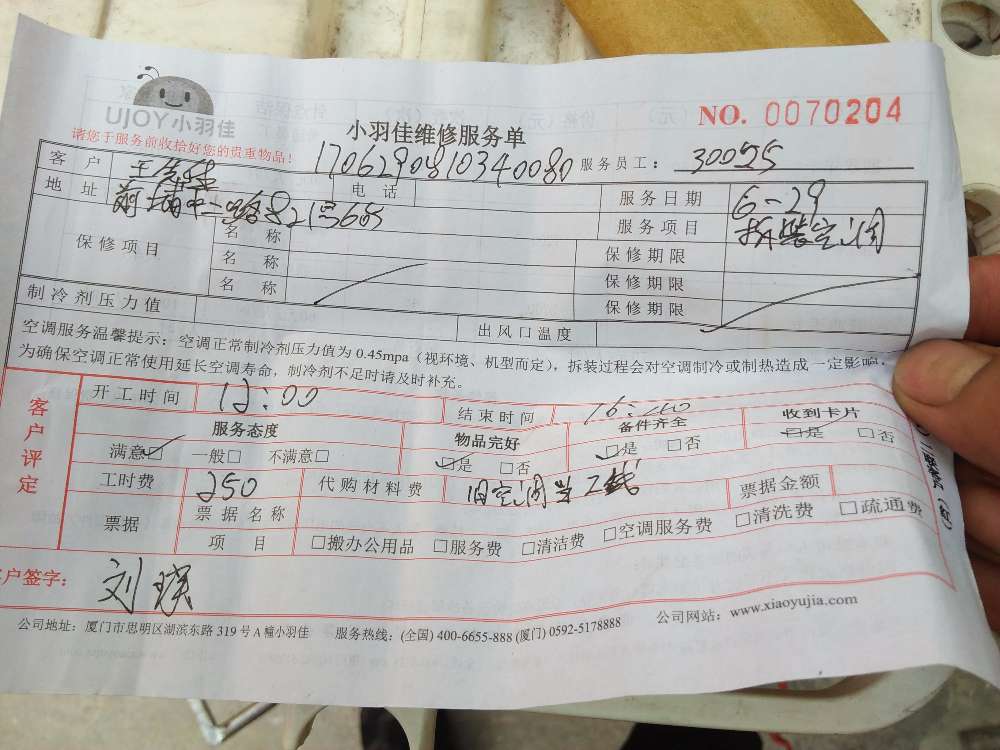 UJOY小羽佳
NO. 0070204
请您于服务前收给好您的贵重物品!
小羽佳维修服务单
1706290810340080
服务员工: 30075
客户 王
电话
服务日期 6-29
地址 中二路 21号
服务项目 拆装空调
保修项目
名称
保修期限
名称
保修期限
名称
保修期限
制冷剂压力值
出风口温度
空调服务温馨提示:空调正常制冷剂压力值为0.45mpa(视环境、机型而定),拆装过程会对空调制冷或制热造成一定影响,
为确保空调正常使用延长空调寿命,制冷剂不足时请及时补充。
客户评定
开工时间 12:00
结束时间 16:
服务态度
物品完好
备件齐全
收到卡片
满意□ 一般□ 不满意□
□是 □否
□是 □否
□是 □否
工时费 250
代购材料费 旧空调当工钱
票据金额
票据
票据名称
项目 □搬办公用品 □服务费 □清洁费 □空调服务费 □清洗费 □疏通费
户签字: 刘瑛
公司地址:厦门市思明区湖滨东路319号A幢小羽佳 服务热线:(全国)400-6655-888(厦门)0592-5178888 公司网站:www.xiaoyujia.com